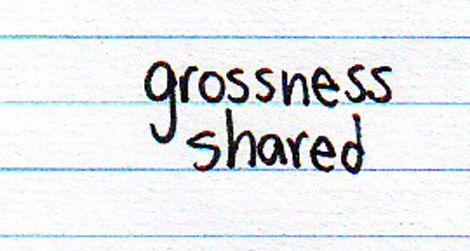 grossness
shared